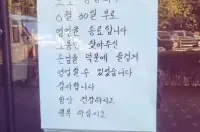 6월 30일 부로
영업을 종료 합니다
그동안 찾아주신
손님들 덕분에 즐겁게
영업할 수 있었습니다
감사합니다
항상 건강하시고
행복 하십시오